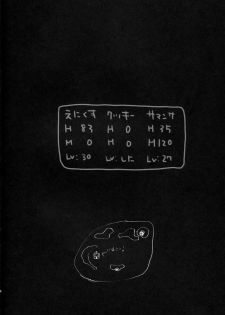 えにくす クッキー サマンサ
H 83 H 0 H 35
M 0 M 0 M 120
Lv:30 Lv:した Lv:27